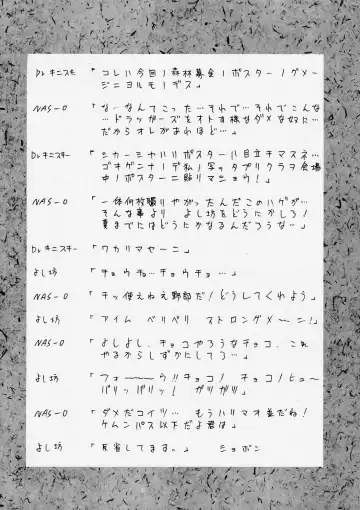 Dr.キニスキー 「コレハ今回ノ森林募金ノポスターノダメージニヨルモノデス」
NAS-0 「なーなんてこった…それで…それでこんな
…ドラッガーズをオトす様なダメな奴に…
だからオレがあれほど…」
Dr.キニスキー 「シカーシナハリポスターハ目立チマスネ…
ゴキゲンナトデ私ノ写ッタプリクラヲ会場
中ノポスターニ貼リマショウ!」
NAS-0 「一体何枚撮りやがったんだこのハゲが…
そんな事より よし坊をどうにかしろ!
夏までにはどうにかなるんだろうな…」
Dr.キニスキー 「ワカリマセーニ」
よし坊 「チョウチョ…チョウチョ…」
NAS-0 「チッ使えねえ野郎だ!どうしてくれよう」
よし坊 「アイム ベリベリ ストロングメ〜ン!」
NAS-0 「よしよし、チョコやろうなチョコ、これ
やるからしずかにしてろ…」
よし坊 「フォーーウ!!チョコ! チョコ!ヒュー
バリッバリッ! ガツガツ」
NAS-0 「ダメだコイツ… もうハリマオ並だね!
ケムンパス以下だよ君は」
よし坊 「反省してます。 ショボン